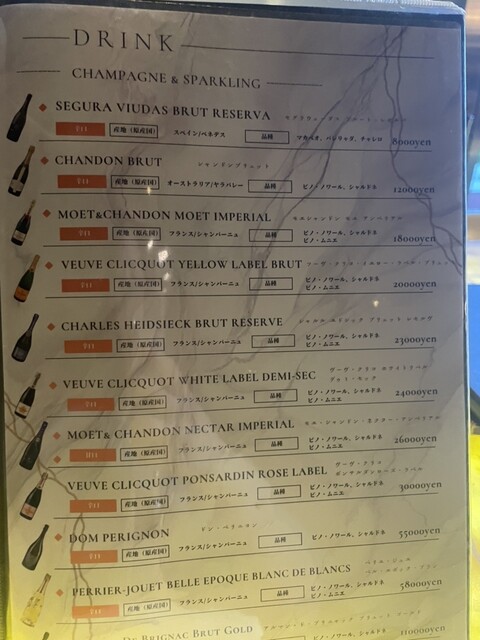 DRINK
CHAMPAGNE & SPARKLING
SEGURA VIUDAS BRUT RESERVA
辛口 産地（原産国） スペイン/ペネデス 品種 マカベオ、パレリャダ、チャレロ 8000yen
CHANDON BRUT シャンドンブリュット
辛口 産地（原産国） オーストラリア/ヤラバレー 品種 ピノ・ノワール、シャルドネ 12000yen
MOET&CHANDON MOET IMPERIAL モエシャンドン モエ アンペリアル
辛口 産地（原産国） フランス/シャンパーニュ 品種 ピノ・ノワール、シャルドネ
ピノ・ムニエ 18000yen
VEUVE CLICQUOT YELLOW LABEL BRUT
辛口 産地（原産国） フランス/シャンパーニュ 品種 ピノ・ノワール、シャルドネ
ピノ・ムニエ 20000yen
CHARLES HEIDSIECK BRUT RESERVE
辛口 産地（原産国） フランス/シャンパーニュ 品種 ピノ・ノワール、シャルドネ
ピノ・ムニエ 23000yen
VEUVE CLICQUOT WHITE LABEL DEMI-SEC
産地（原産国） フランス/シャンパーニュ 品種 ピノ・ノワール、シャルドネ
ピノ・ムニエ 24000yen
MOET& CHANDON NECTAR IMPERIAL
甘口 産地（原産国） フランス/シャンパーニュ 品種 ピノ・ノワール、シャルドネ
ピノ・ムニエ 26000yen
VEUVE CLICQUOT PONSARDIN ROSE LABEL
辛口 産地（原産国） フランス/シャンパーニュ 品種 ピノ・ノワール、シャルドネ
ピノ・ムニエ 30000yen
DOM PERIGNON ドン・ペリニヨン
辛口 産地（原産国） フランス/シャンパーニュ 品種 ピノ・ノワール、シャルドネ 55000yen
PERRIER-JOUET BELLE EPOQUE BLANC DE BLANCS
辛口 産地（原産国） フランス/シャンパーニュ 品種 ピノ・ノワール、シャルドネ
ピノ・ムニエ 58000yen
DE BRIGNAC BRUT GOLD
110000yen